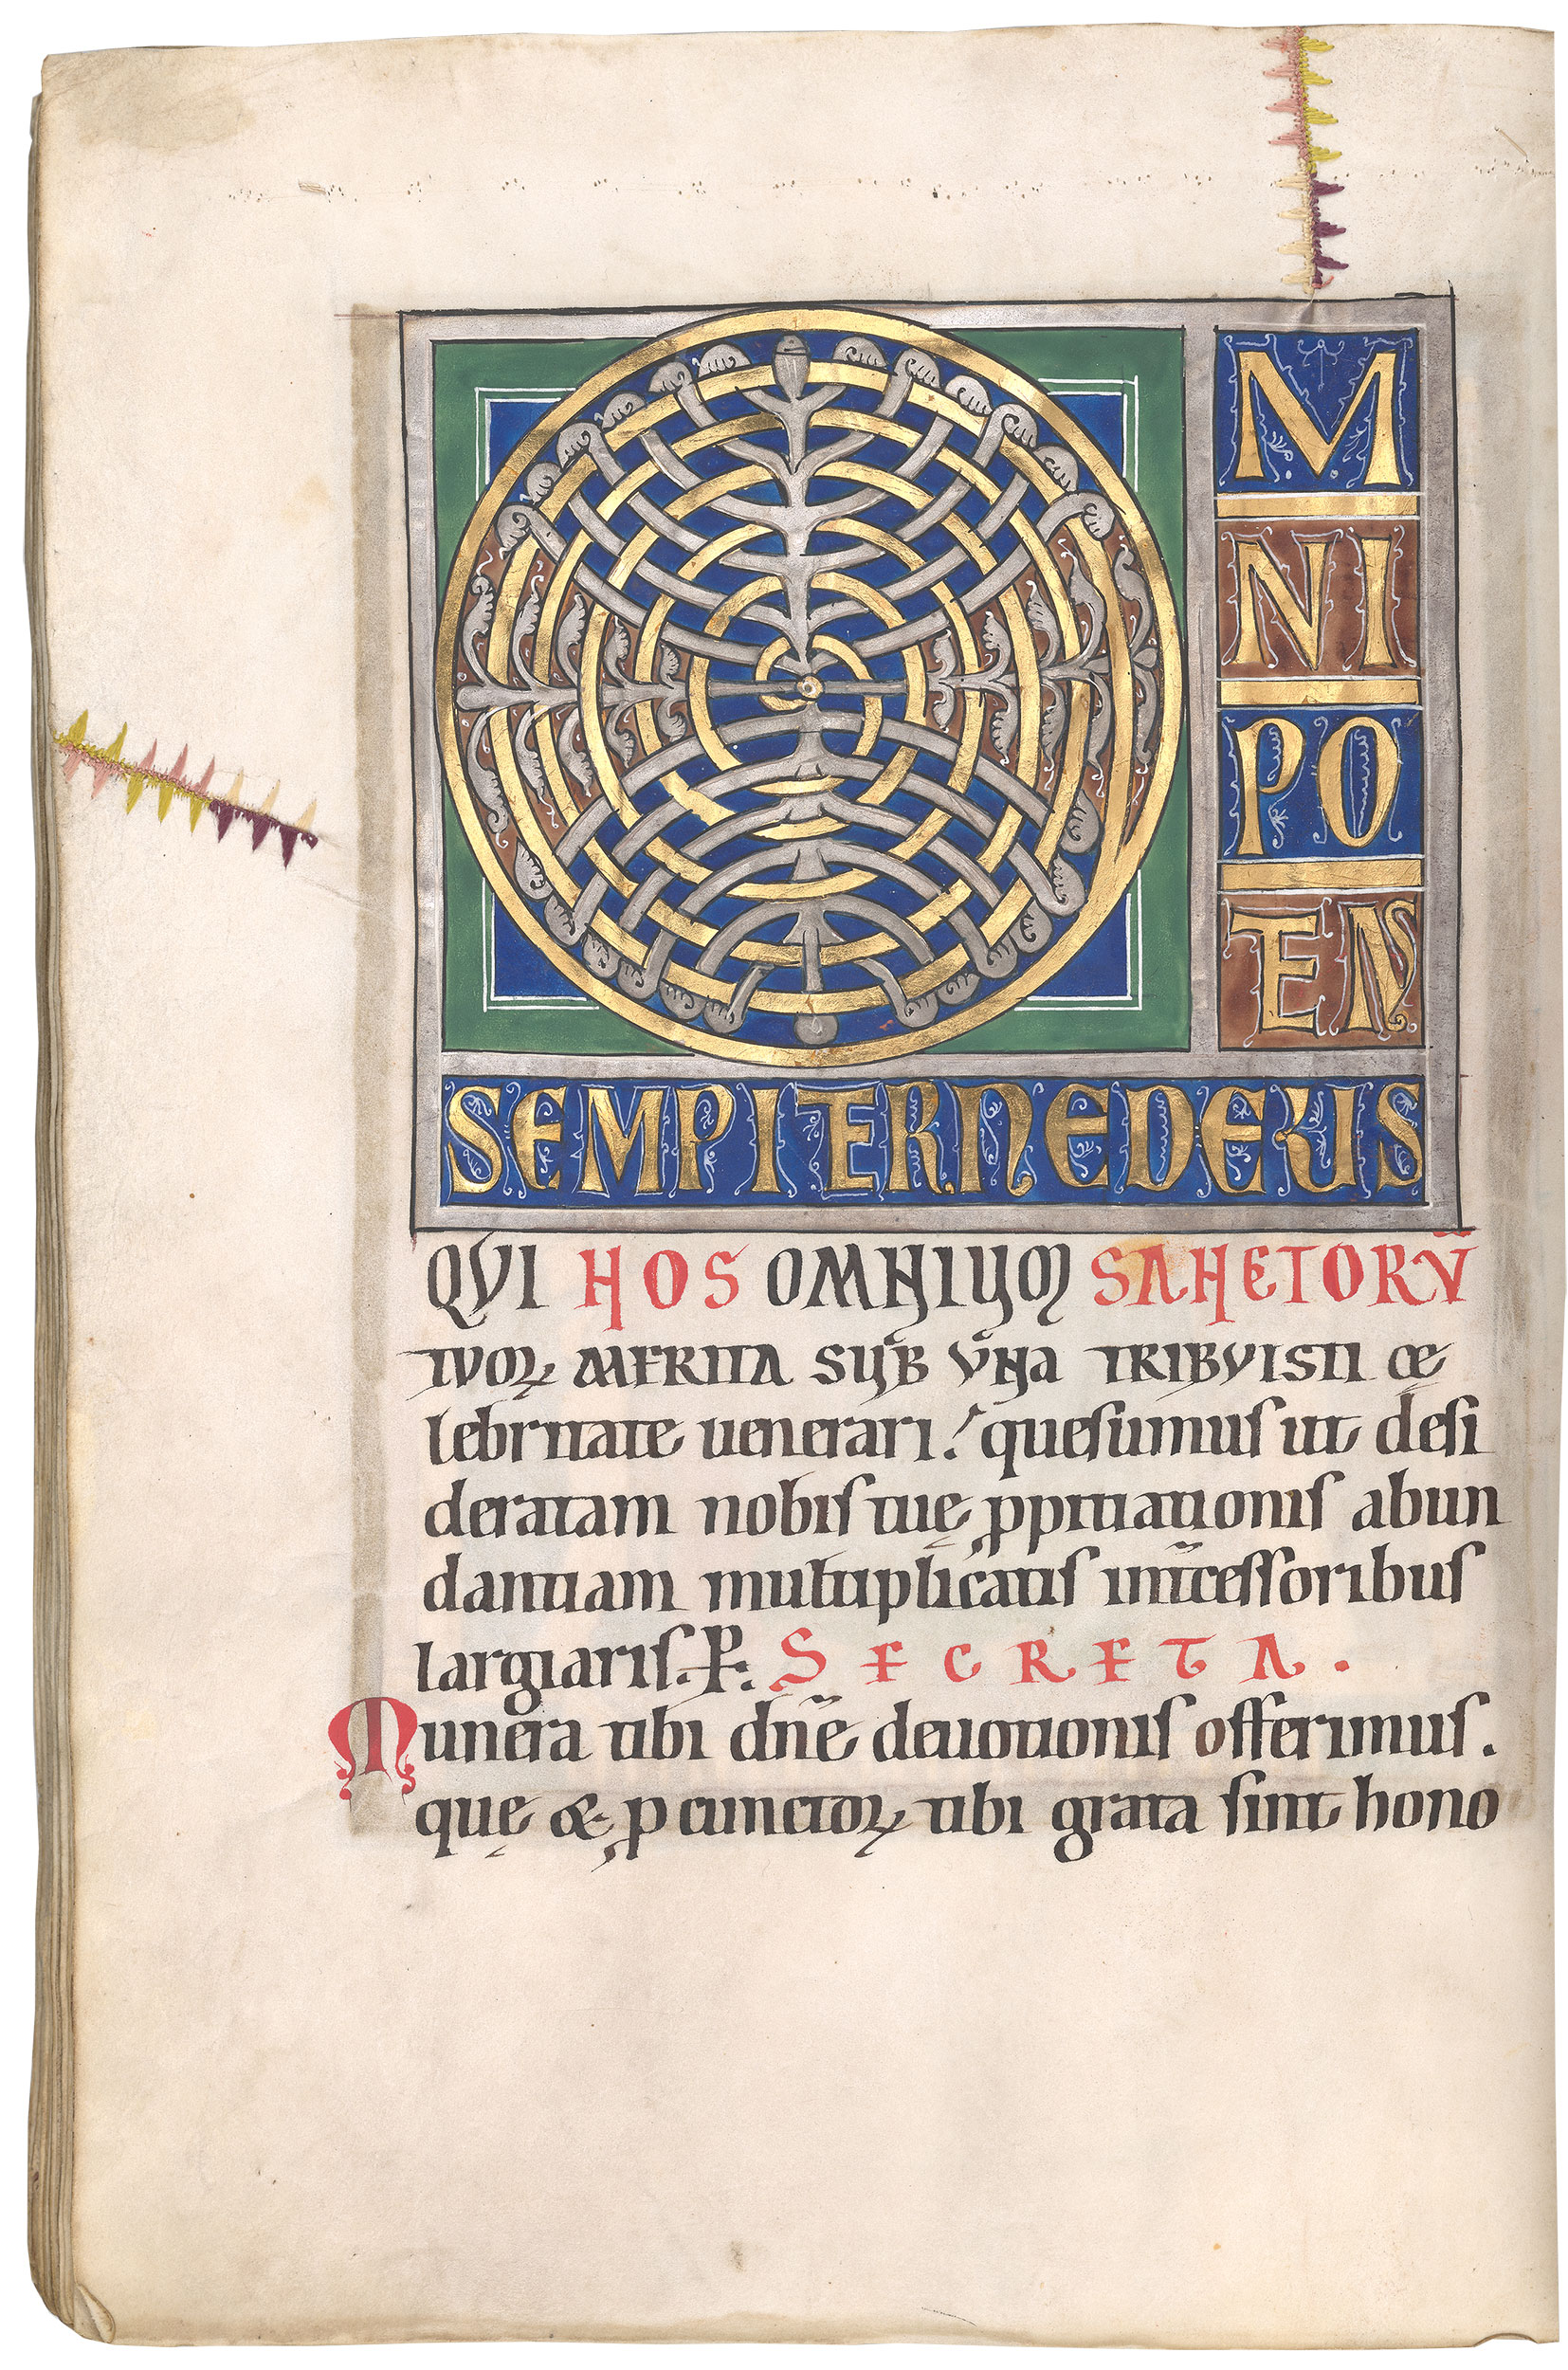 O
M
NI
PO
TENS
SEMPITERNE DEUS
QVI HOS OMNIUM SANCTORV̄
TVOꝜ MERITA SUB V̊NA TRIBVISTI CĘ
lebritate uenerari. quesumus ut desi
deratam nobis tuę ꝓpitiationis abun
dantiam multiplicatis int̄cessoribus
largiaris. P. SECRETA.
Munera tibi dn̄e deuotionis offerimus.
quę & ꝓ cunctoꝝ tibi grata sint hono